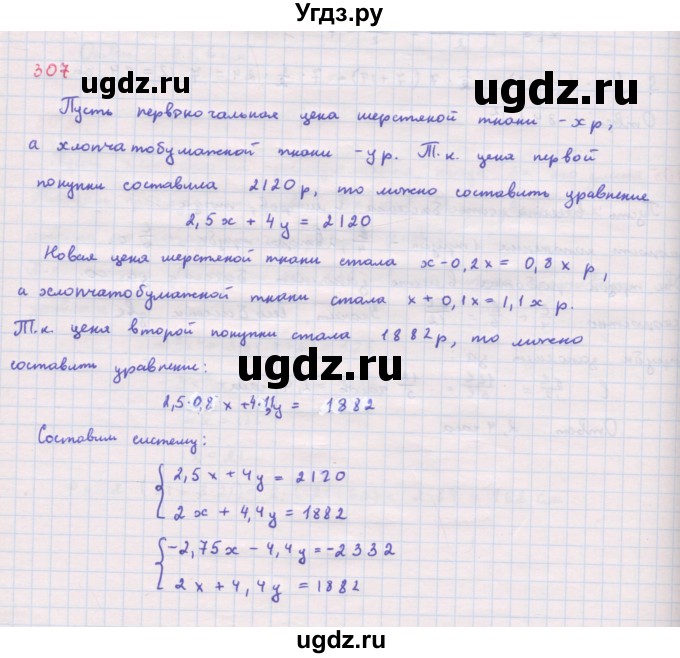 Угдз.ру
307
ugdz.ru
ugdz.ru
Пусть первоночальная цена шерстяной ткани - x р,
а хлопчатобумажной ткани - y р. Т.к. цена первой
покупки составила 2120 р, то можно составить уравнение
2,5x + 4y = 2120
Новая цена шерстяной ткани стала x-0,2x = 0,8x р,
а хлопчатобумажной ткани стала x + 0,1x = 1,1x р.
ugdz.ru
ugdz.ru
Т.к. цена второй покупки стала 1882р, то можно
составить уравнение:
2,5·0,8x + 4·1,1y = 1882
Составим систему:
ugdz.ru
ugdz.ru
2,5x + 4y = 2120
2x + 4,4y = 1882
-2,75x - 4,4y = -2332
2x + 4,4y = 1882
ugdz.ru